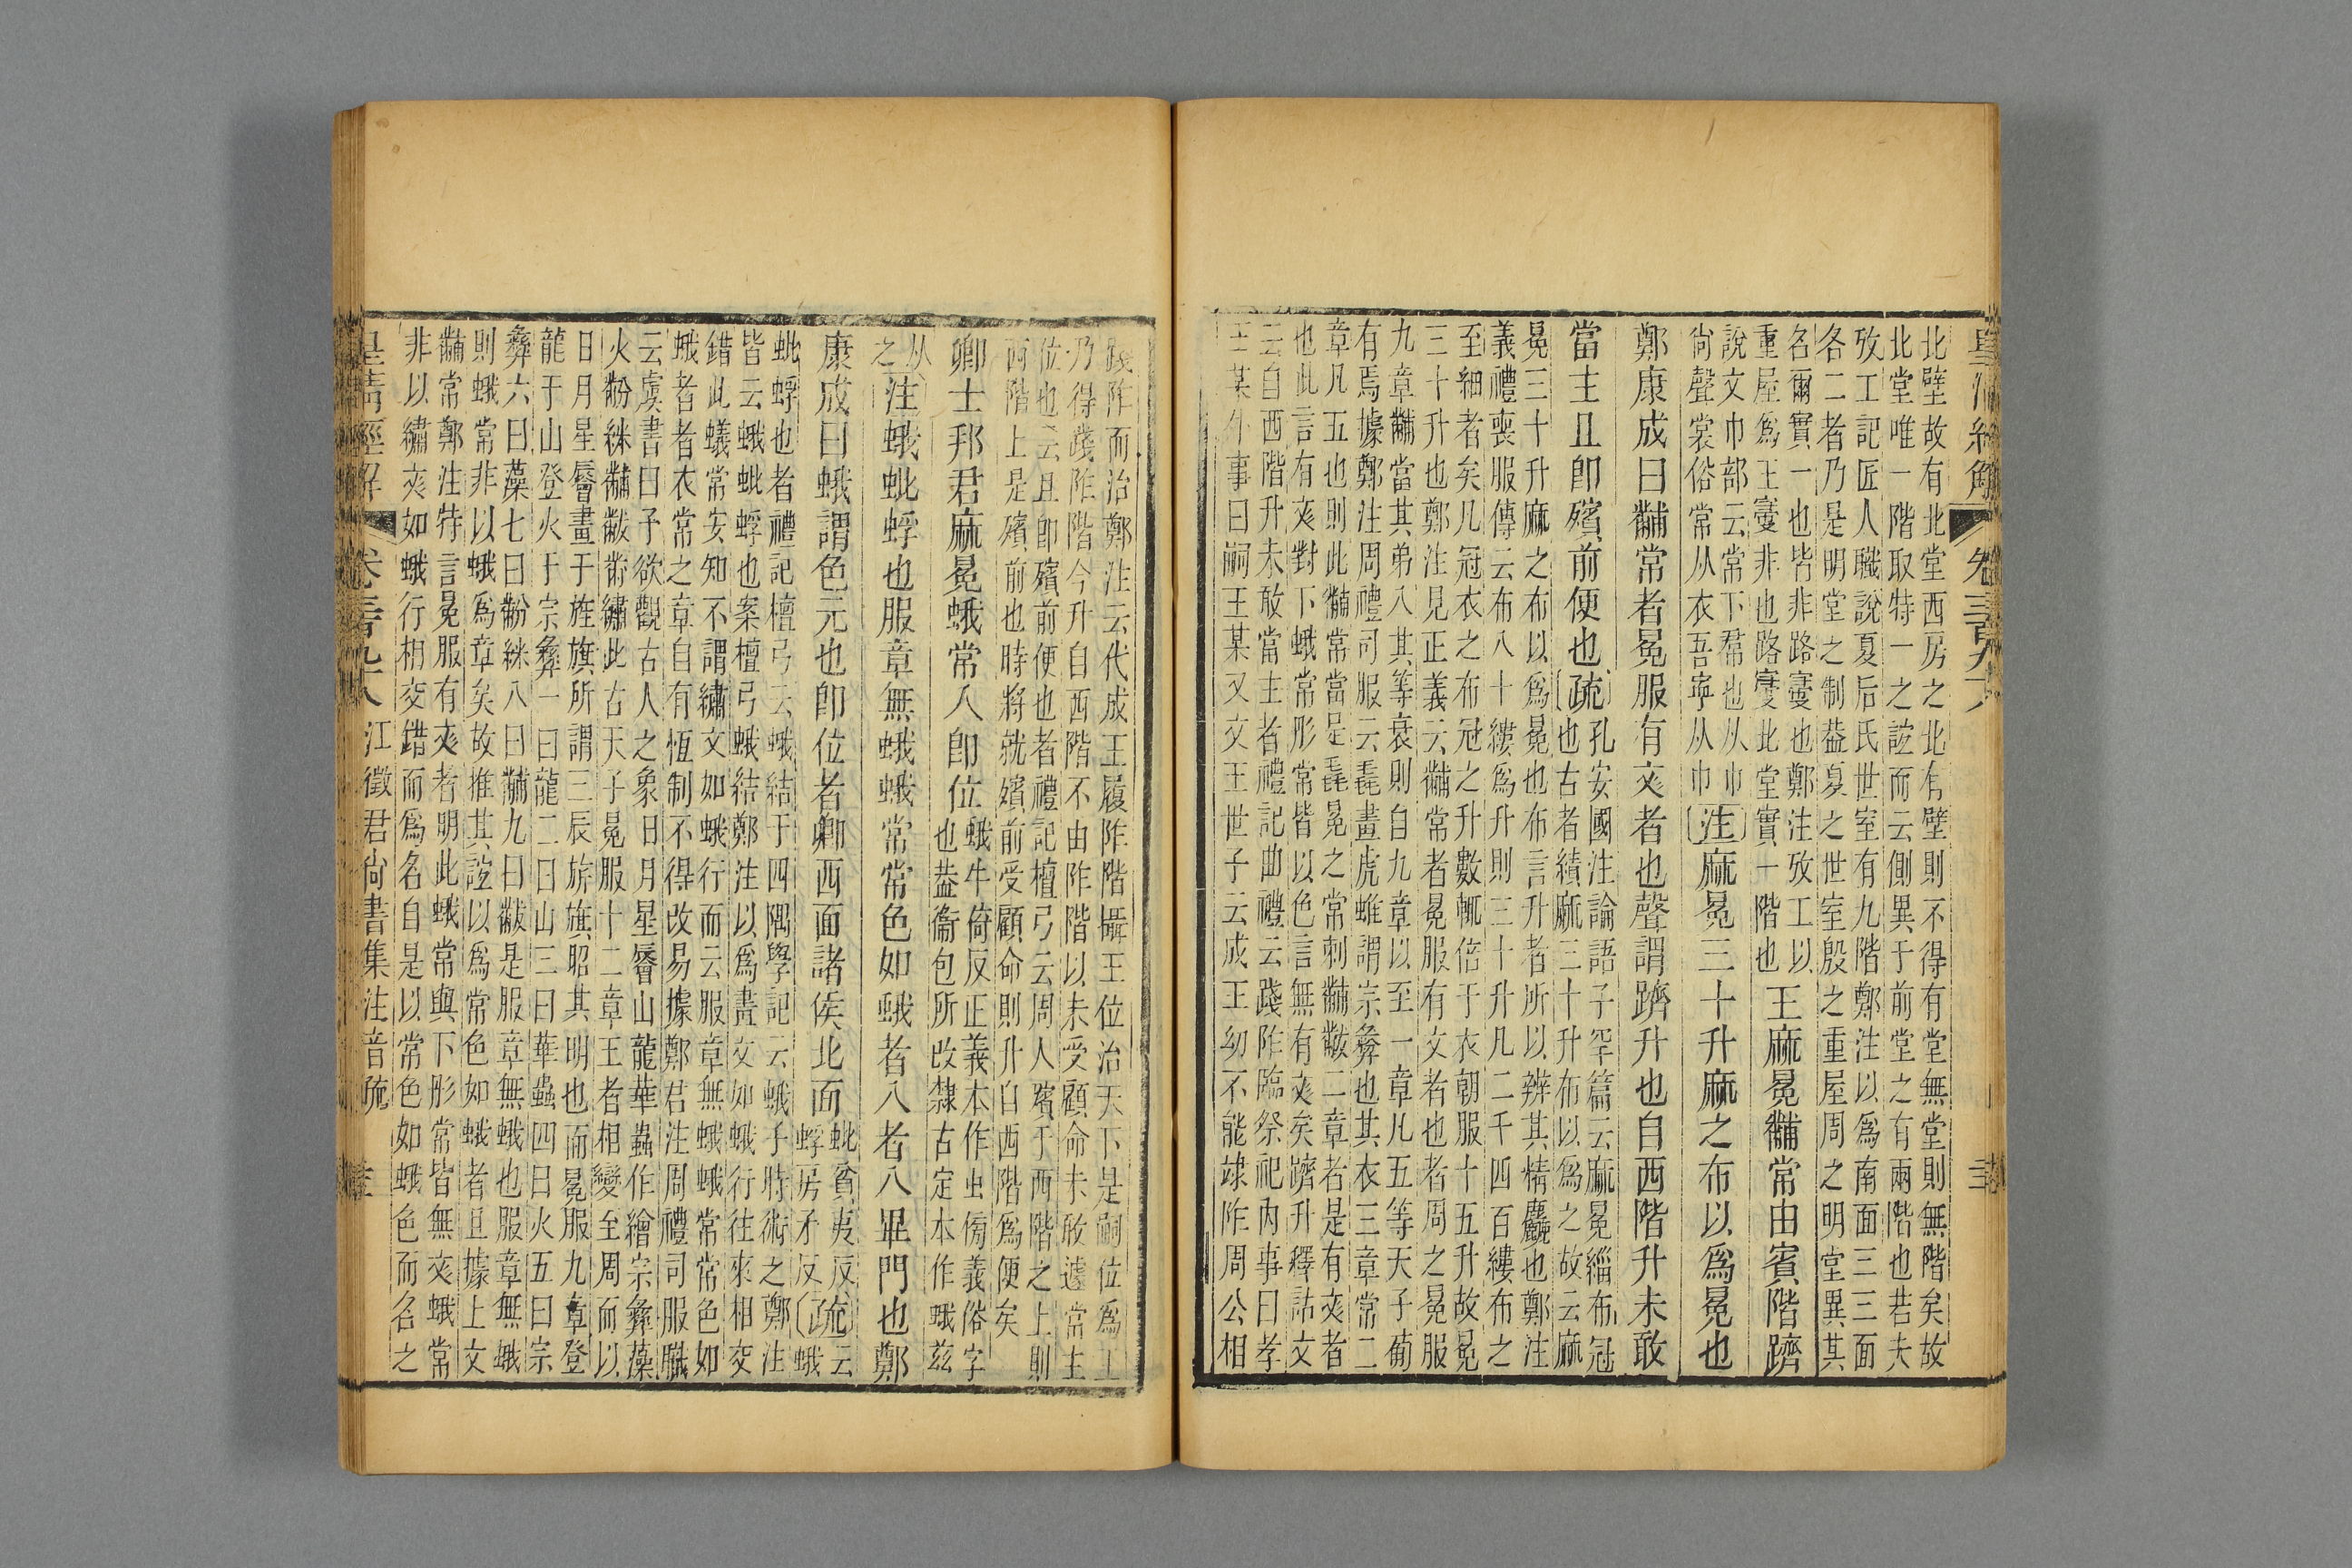 皇清經解 卷三百九十八
北壁故有北堂西房之北有壁則不得有堂無堂則無階矣故
北堂唯一階取特一之誼而云側異于前堂之有兩階也若夫
攷工記匠人職說夏后氏世室有九階鄭注以爲南面三三面
各二者乃是明堂之制葢夏之世室殷之重屋周之明堂異其
名爾實一也皆非路寢也鄭注攷工以
重屋爲王寢非也路寢此堂實一階也
王麻冕黼常由賓階隮
說文巾部云常下帬也从巾
尙聲裳俗常从衣吾寧从巾
注麻冕三十升麻之布以爲冕也
鄭康成曰黼常者冕服有文者也聲謂隮升也自西階升未敢
當主且卽殯前便也疏
孔安國注論語子罕篇云麻冕緇布冠
也古者績麻三十升布以爲之故云麻
冕三十升麻之布以爲冕也布言升者所以辨其精麤也鄭注
義禮喪服傳云布八十縷爲升則三十升凡二千四百縷布之
至細者矣凡冠衣之布冠之升數輒倍于衣朝服十五升故冕
三十升也鄭注見正義云黼常者冕服有文者也者周之冕服
九章黼當其弟八其等衰則自九章以至一章凡五等天子葡
有焉據鄭注周禮司服云毳畫虎蜼謂宗彝也其衣三章常二
章凡五也則此黼常當是毳冕之常刺黼黻二章者是有文者
也此言有文對下蛾常彤常皆以色言無有文矣隮升釋詁文
云自西階升未敢當主者禮記曲禮云踐阼臨祭祀內事曰孝
王某外事曰嗣王某又文王世子云成王幼不能涖阼周公相
踐阼而治鄭注云代成王履阼階攝王位治天下是嗣位爲王
乃得踐阼階今升自西階不由阼階以未受顧命未敢遽當主
位也云且卽殯前便也者禮記檀弓云周人殯于西階之上則
西階上是殯前也時將就殯前受顧命則升自西階爲便矣
卿士邦君麻冕蛾常入卽位
蛾牛倚反正義本作虫㑂義俗字
也葢衞包所改隸古定本作蛾茲
从
之
注蛾蚍蜉也服章無蛾蛾常常色如蛾者入者入畢門也鄭
康成曰蛾謂色元也卽位者卿西面諸侯北面
蚍貧夷反
蜉房矛反
疏云
蛾
蚍蜉也者禮記檀弓云蛾結于四隅學記云蛾子時術之鄭注
皆云蛾蚍蜉也案檀弓蛾結鄭注以爲畫文如蛾行往來相交
錯此蟻常安知不謂繡文如蛾行而云服章無蛾蛾常常色如
蛾者者衣常之章自有恆制不得改易據鄭君注周禮司服職
云虞書曰予欲觀古人之象日月星㫳山龍華蟲作繪宗彝藻
火黺絲黼黻黹繡此古天子冕服十二章王者相變至周而以
日月星㫳畫于旌旗所謂三辰旂旗昭其明也而冕服九章登
龍于山登火于宗彝一曰龍二曰山三曰華蟲四曰火五曰宗
彝六曰藻七曰黺絲八曰黼九曰黻是服章無蛾也服章無蛾
則蛾常非以蛾爲章矣故推其誼以爲常色如蛾者且據上文
黼常鄭注特言冕服有文者明此蛾常與下彤常皆無文蛾常
非以繡文如蛾行相交錯而爲名自是以常色如蛾色而名之
皇淸經解 卷三百九十八 江徵君尙書集注音疏